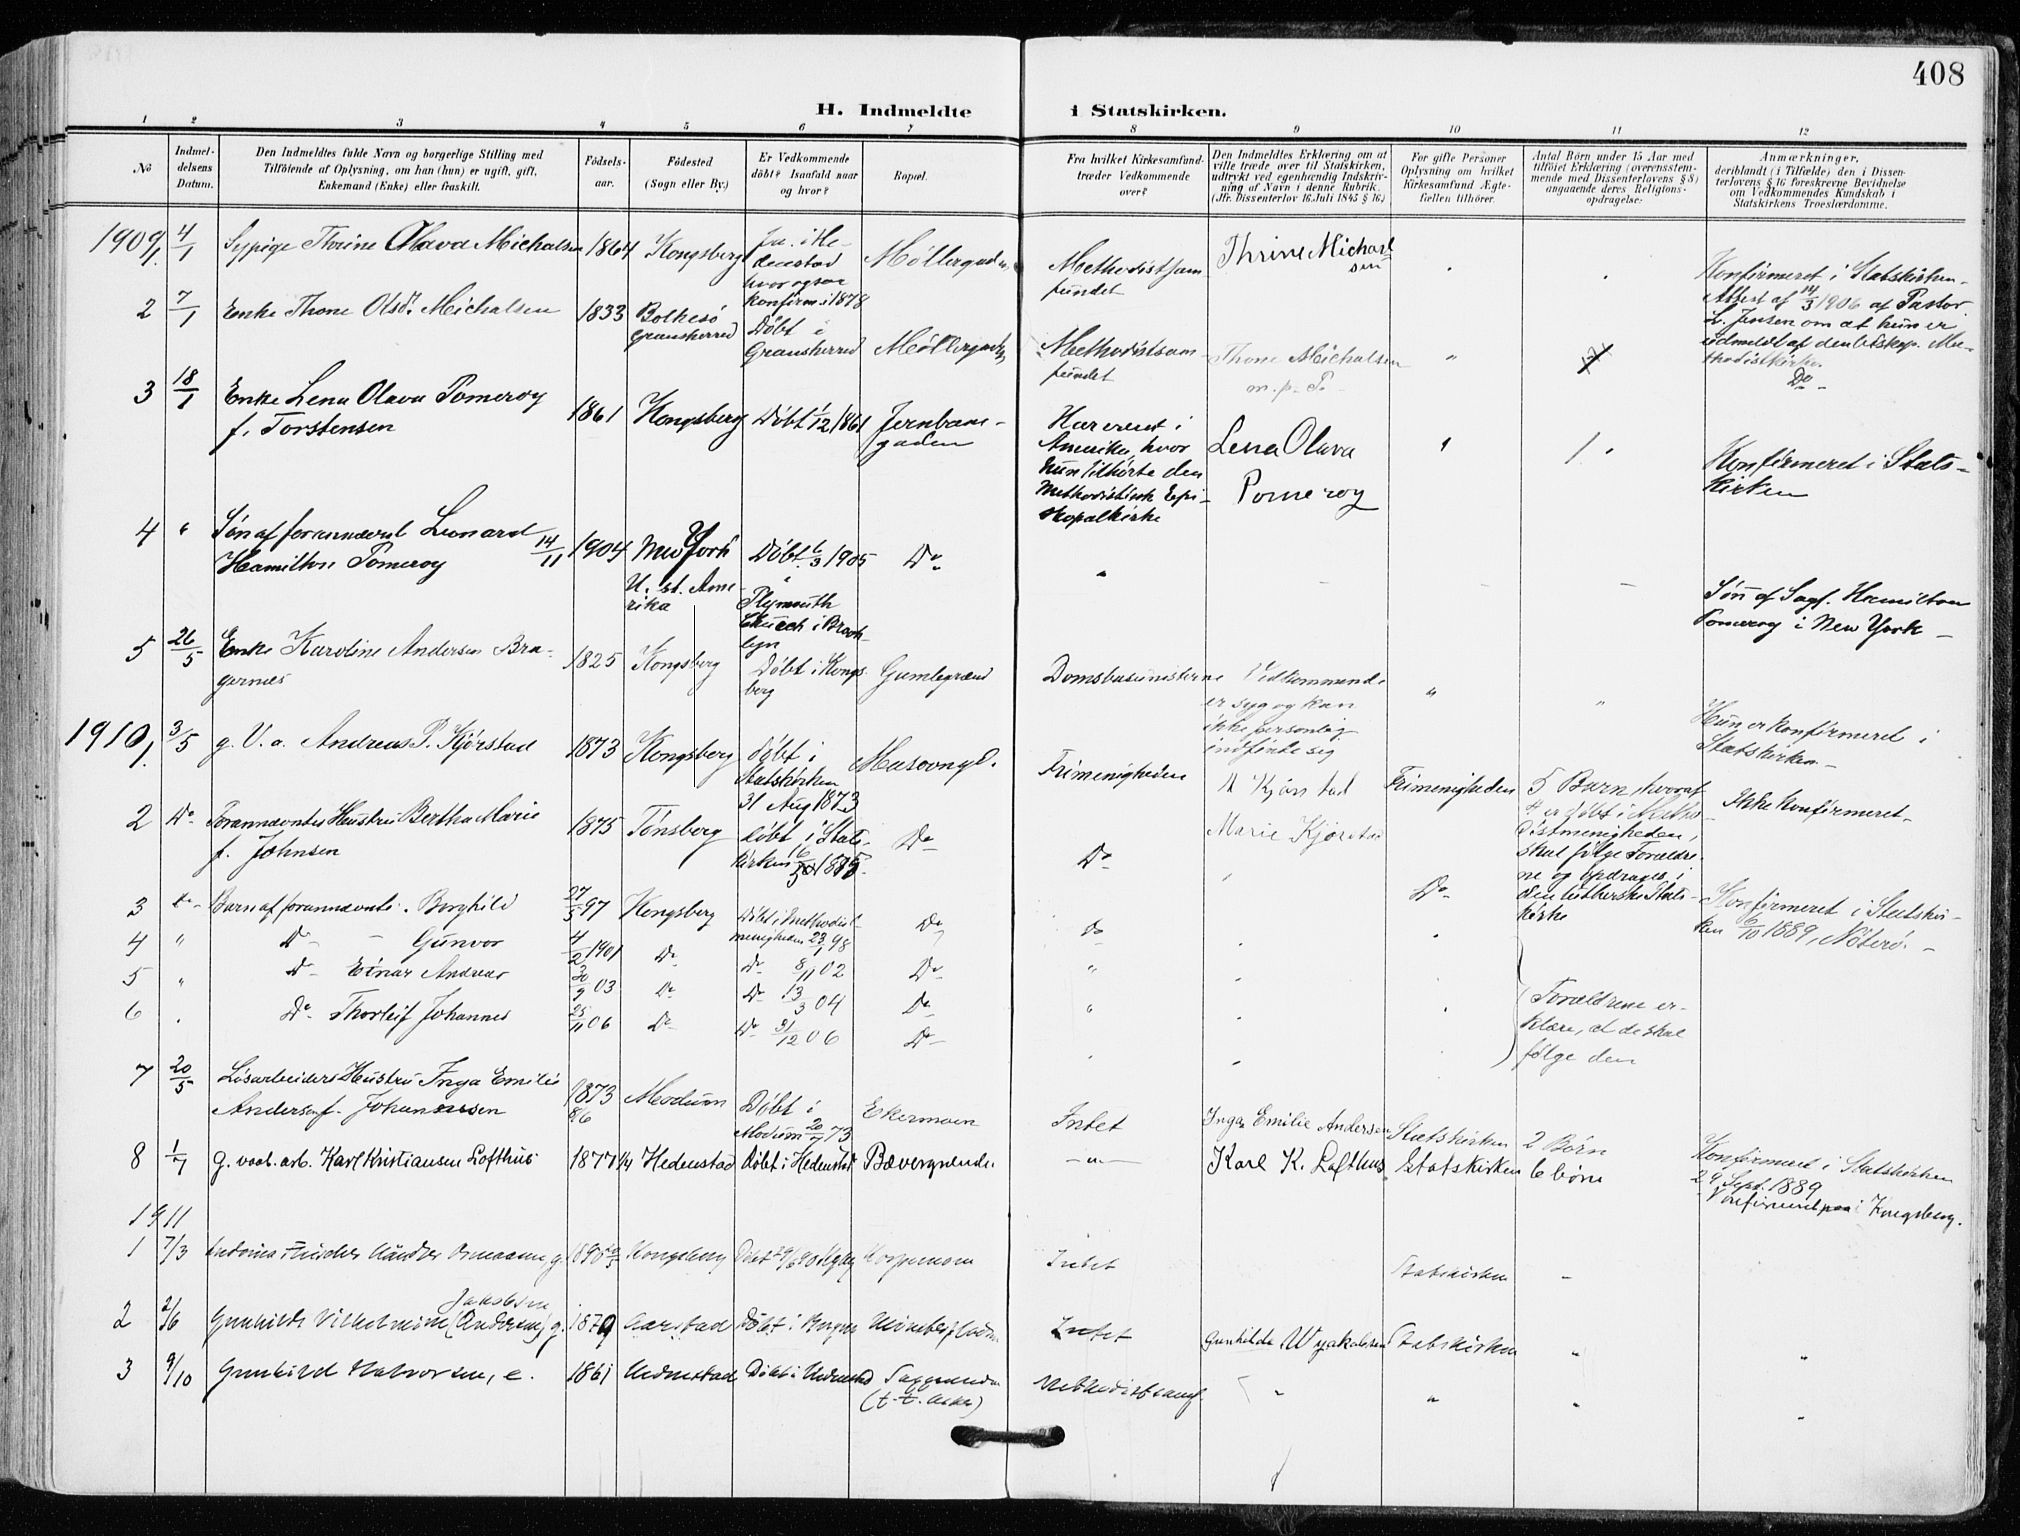 408
H. Indmeldte i Statskirken.
1 2 3 4 5 6 7 8 9 10 11 12
No
Indmeldelsens Datum.
Den Indmeldtes fulde Navn og borgerlige Stilling med
Tilföiende af Oplysning, om han (hun) er ugift, gift,
Enkemand (Enke) eller fraskilt.
Födselsaar.
Födested
(Sogn eller By.)
Er Vedkommende
döbt? Isaafald naar
og hvor?
Bopæl.
Fra hvilket Kirkesamfund
træder Vedkommende
over?
Den Indmeldtes Erklæring om at
ville træde over til Statskirken,
udtrykt ved egenhændig Indskrivning af Navn i denne Rubrik.
(Jfr. Dissenterlov 16. Juli 1845 § 16.)
For gifte Personer
Oplysning om hvilket
Kirkesamfund Ægtefællen tilhörer.
Antal Börn under 15 Aar med
tilföiet Erklæring (overensstemmende med Dissenterlovens § 8)
angaaende deres Religionsopdragelse:
Anmærkninger,
deriblandt (i Tilfælde) den i Dissenterlovens § 16 foreskrevne Bevidnelse
om Vedkommendes Kundskab i
Statskirkens Troeslærdomme.
1909
1. 4/1 Sypige Thrine Olava Michalsen 1864 Kongsberg Ja. i Hedenstad hvor ogsaa konfirm. i 1878 Møllergaden Methodistsamfundet Thrine Michaelsen
Konfirmeret i Statskirken. Attest af 14/3 1906 af Pastor L. Jensen om at hun er udmeldt af den bisko. Methodistkirke.
2 7/1 Enke Thone Olsdt. Michalsen 1833 Bolkesø Gransherred Døbt i Gransherred Møllergaden Methodistsamfundet Thone Michalsen m. p. P. " Do
3 18/1 Enke Lena Olava Pomeroy f. Torstensen 1861 Kongsberg Døbt 1/12 1861 Jernbanegaden Har været i Amerika, hvor hun tilhørte den Methodistisk Episkopalkirke Lena Olava Pomeroy " 1. Konfirmeret i Statskirken
4 " Søn af forannævnte Leonard Hamilton Pomeroy 14/11 1904 New York U. st. Amerika Døbt 6/3 1905 i Plymouth Church i Brooklyn Do " Søn af Sagf. Hamilton Pomeroy i New York
5 26/5 Enke Karoline Andersen Bragernes 1825 Kongsberg Døbt i Kongsberg Gamlegrænd Vedkommende er syg og kan ikke personlig indfinde sig " " Hun er konfirmeret i Statskirken
1910
1. 3/5 g. V. a. Andreas P. Kjørstad 1873 Kongsberg døbt i Statskirken 31 Aug 1873 Masovngd. Frimenigheden A Kjørstad Frimenigheden 5 Barn, hvoraf 4 er døbt i Methodistmenigheden, skal følge Forældrene og opdrages i den lutherske Statskirke Ikke konfirmeret
2 Do Forannævntes Hustru Bertha Marie f. Johnsen 1875 Tønsberg døbt i Statskirken 1875 Do Do Marie Kjørstad Do Konfirmeret i Statskirken 6/10 1889, Nøterø.
3 Do Barn af forannævnte. Borghild 27/5 97 Kongsberg Døbt i Methodistmenigheden 23/1 98 Do Do
4 " Do Gunvor 4/2 1901 Do Do 8/11 02 Do "
5 " Do Einar Andreas 30/9 03 Do Do 13/3 04 Do "
6 . Do Thorleif Johannes 25/11 06 Do Do 31/12 06 Do
Forældrene erklære, at de skal følge den
7 20/5 Løsarbeiders Hustru Inga Emilie Andersen f. Johannesen 1873 8/6 Modum Døbt i Modum 20/7 73 Ekermoen Intet Inga Emilie Andersen Statskirken 2 Børn Konfirmeret i Statskirken 29 Sept. 1889
8 1/7 g. vaab. arb. Karl Kristiansen Lofthus 1877 1/4 Hedenstad Døbt i Hedenstad Bævergrænden -"- Karl K. Lofthus Statskirken 6 børn Konfirmeret i Kongsberg.
1911
1 7/3 g. 1890 Kongsberg Intet Statskirken -
2 2/6 Gunhilde Vilhelmine Jakobsen (Andersen) g. 1879 Aarstad Døbt i Bergen Intet Gunhilde W Jakobsen Statskirken " "
3 9/10 Gunhild Halvorsen, e. 1861 Hedenstad Døbt i Hedenstad (t. t. Asker) Methodistsamf. " " " "